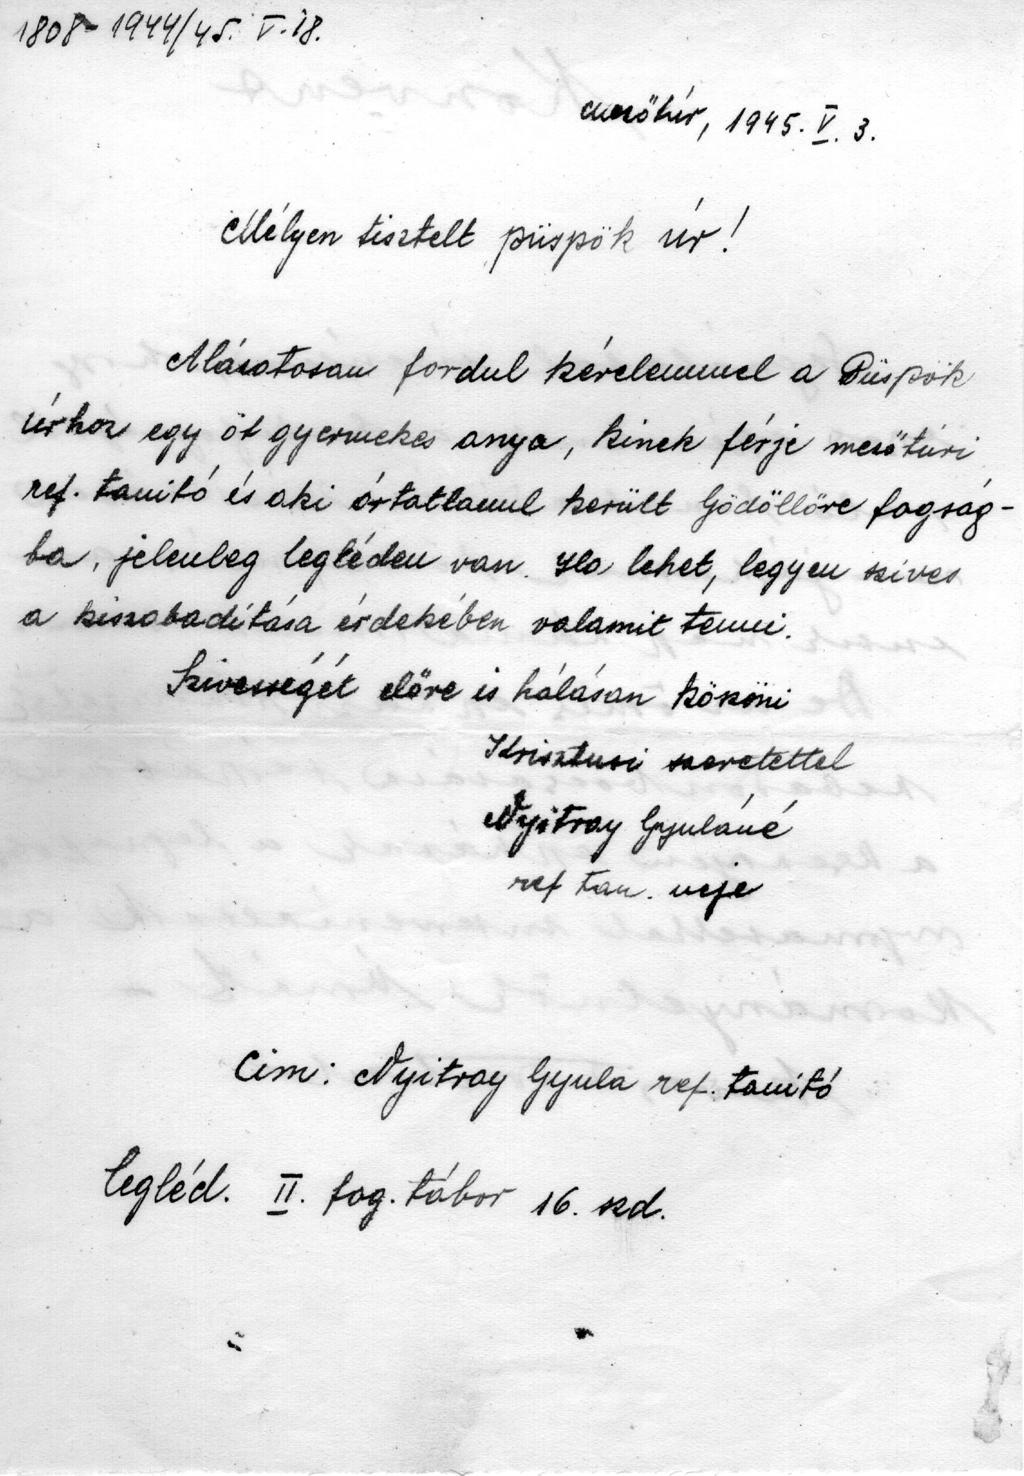 1808-1944/45. V. 18.
Mezőtúr, 1945. V. 3.
Mélyen tisztelt püspök úr!
Alázatosan fordul kérelemmel a Püspök
úrhoz egy öt gyermekes anya, kinek férje mezőtúri
ref. tanító és aki ártatlanul került Gödöllőre fogság-
ba, jelenleg Cegléden van. Ha lehet, legyen szíves
a kiszabadítása érdekében valamit tenni.
Szivességét előre is hálásan köszöni
Krisztusi szeretettel
Nyitray Gyuláné
ref tan. neje
Cim: Nyitray Gyula ref. tanító
Cegléd. II. fog. tábor 16. szd.